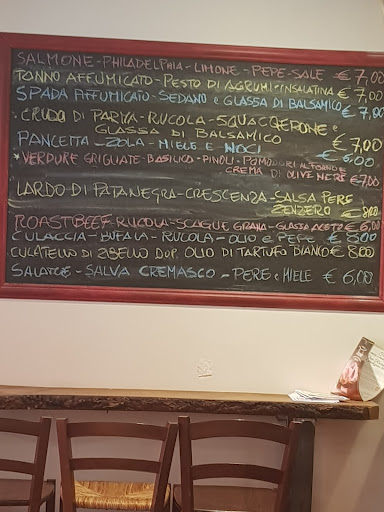 SALMONE - PHILADELPHIA - LIMONE - PEPE - SALE € 7,00
TONNO AFFUMICATO - PESTO DI AGRUMI - INSALATINA € 7,00
SPADA AFFUMICATO - SEDANO e GLASSA DI BALSAMICO € 7,00
• CRUDO DI PARMA - RUCOLA - SQUACQUERONE e
GLASSA DI BALSAMICO € 7,00
PANCETTA - ZOLA - MIELE E NOCI € 6,00
• VERDURE GRIGLIATE - BASILICO - PINOLI - POMODORI AL FORNO e
CREMA DI OLIVE NERE €7,00
LARDO DI PATANEGRA - CRESCENZA - SALSA PERE
ZENZERO € 8,00
ROASTBEEF - RUCOLA - SCAGLIE GRANA - GLASSA ACETO € 6,00
CULACCIA - BUFALA - RUCOLA - OLIO e PEPE € 8,00
CULATELLO DI ZIBELLO DOP. OLIO DI TARTUFO BIANCO € 8,00
SALATORE - SALVA CREMASCO - PERE e MIELE € 6,00